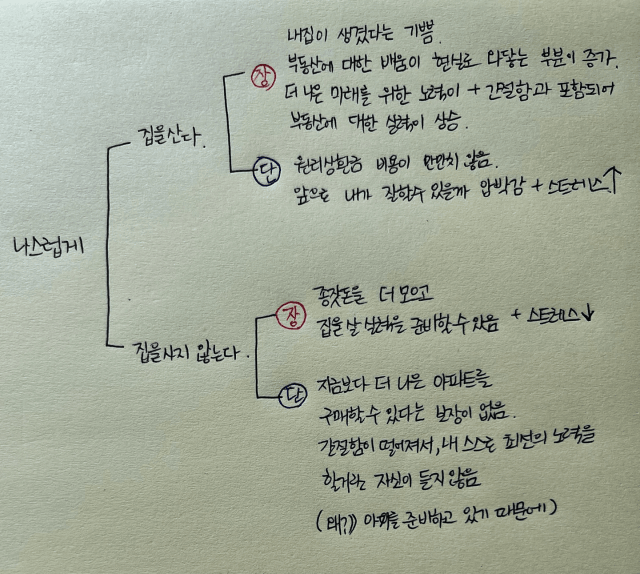 나스럽게
집을산다.
장
내집이 생겼다는 기쁨.
부동산에 대한 배움이 현실로 와닿는 부분이 증가.
더 나은 미래를 위한 노력이 + 간절함과 포함되어
부동산에 대한 실력이 상승.
단
원리상환금 비용이 만만치 않음.
앞으로 내가 잘할수 있을까 압박감 + 스트레스↑
집을사지 않는다.
장
종잣돈을 더 모으고
집을 살 실력을 준비할 수 있음 + 스트레스↓
단
지금보다 더 나은 아파트를
구매할 수 있다는 보장이 없음.
간절함이 떨어져서, 내 스스로 최선의 노력을
할거라는 자신이 들지 않음
(왜?) 준비하고 있기 때문에)